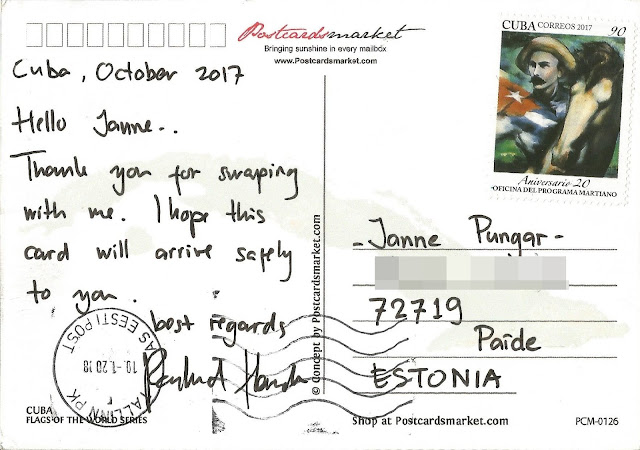 Postcardsmarket
Bringing sunshine in every mailbox
www.Postcardsmarket.com
CUBA CORREOS 2017 90
Aniversario 20
OFICINA DEL PROGRAMA MARTIANO
Cuba, October 2017
Hello Janne..
Thank you for swaping
with me. I hope this
card will arrive safely
to you.
best regards
AS EESTI POST
TALLINN PK
CUBA
FLAGS OF THE WORLD SERIES
© Concept by Postcardsmarket.com
- Janne Pungar -
72719
Paide
ESTONIA
Shop at Postcardsmarket.com
PCM-0126